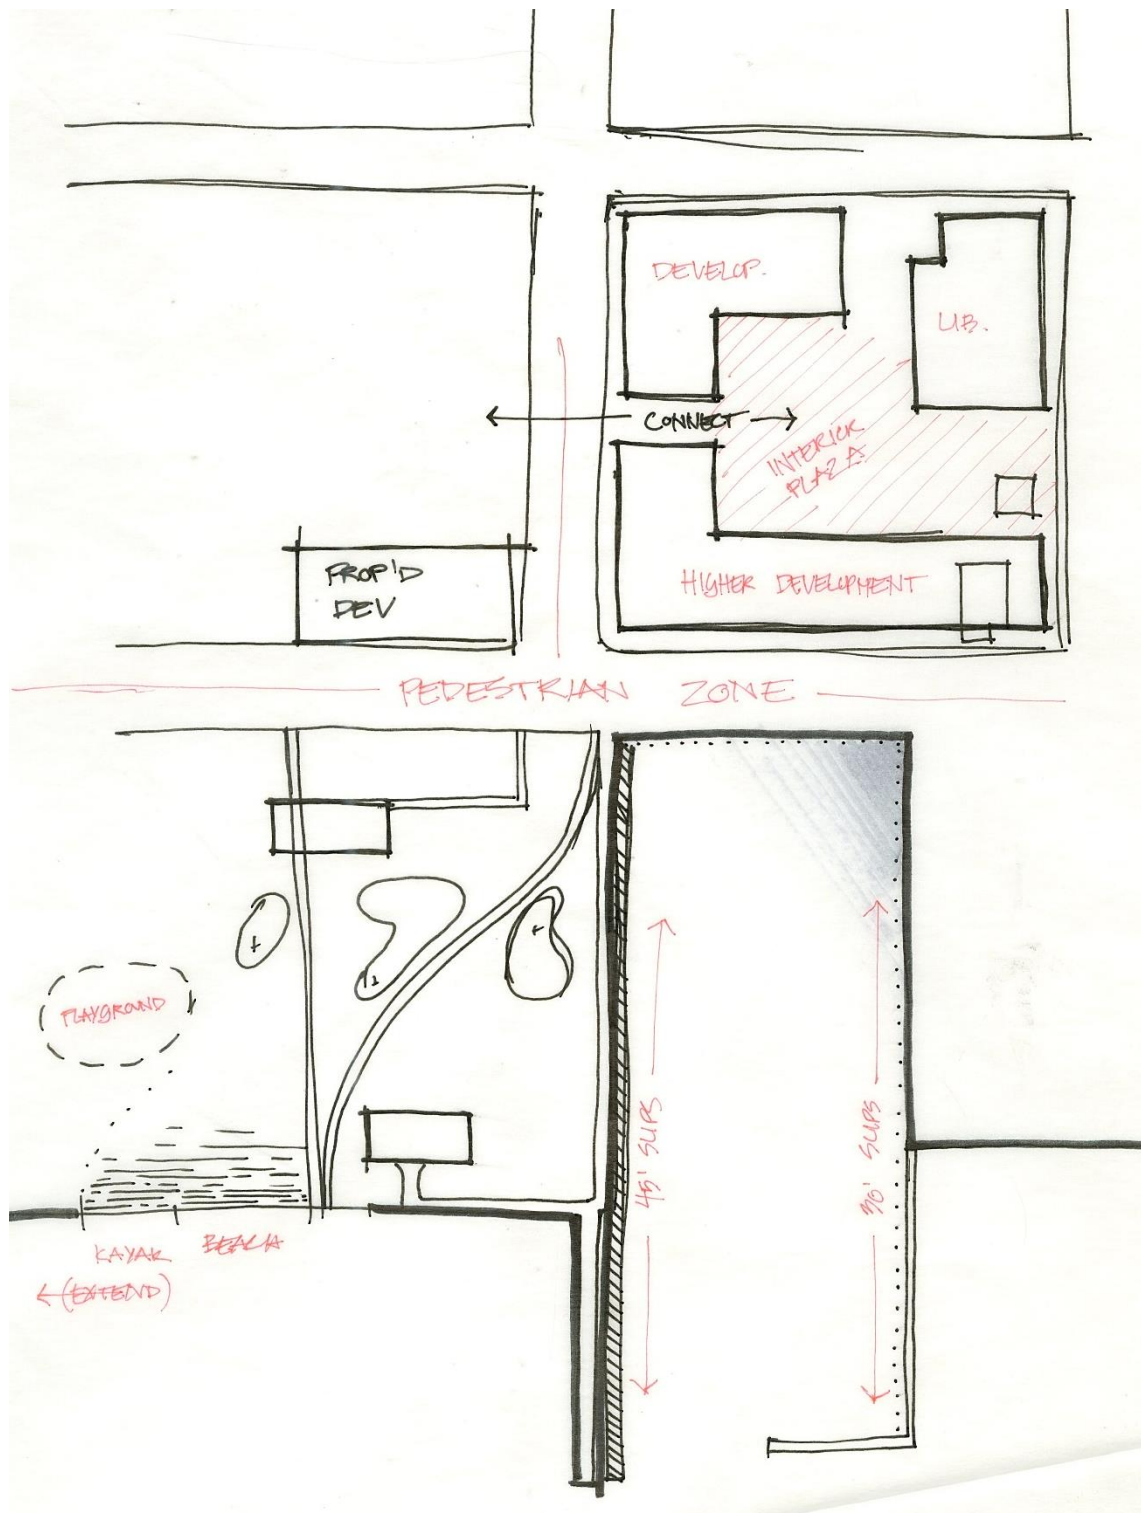 DEVELOP.
LIB.
CONNECT
INTERIOR
PLAZA
PROP'D
DEV
HIGHER DEVELOPMENT
PEDESTRIAN ZONE
PLAYGROUND
45' SLIPS
30' SLIPS
KAYAK BEACH
(EXTEND)